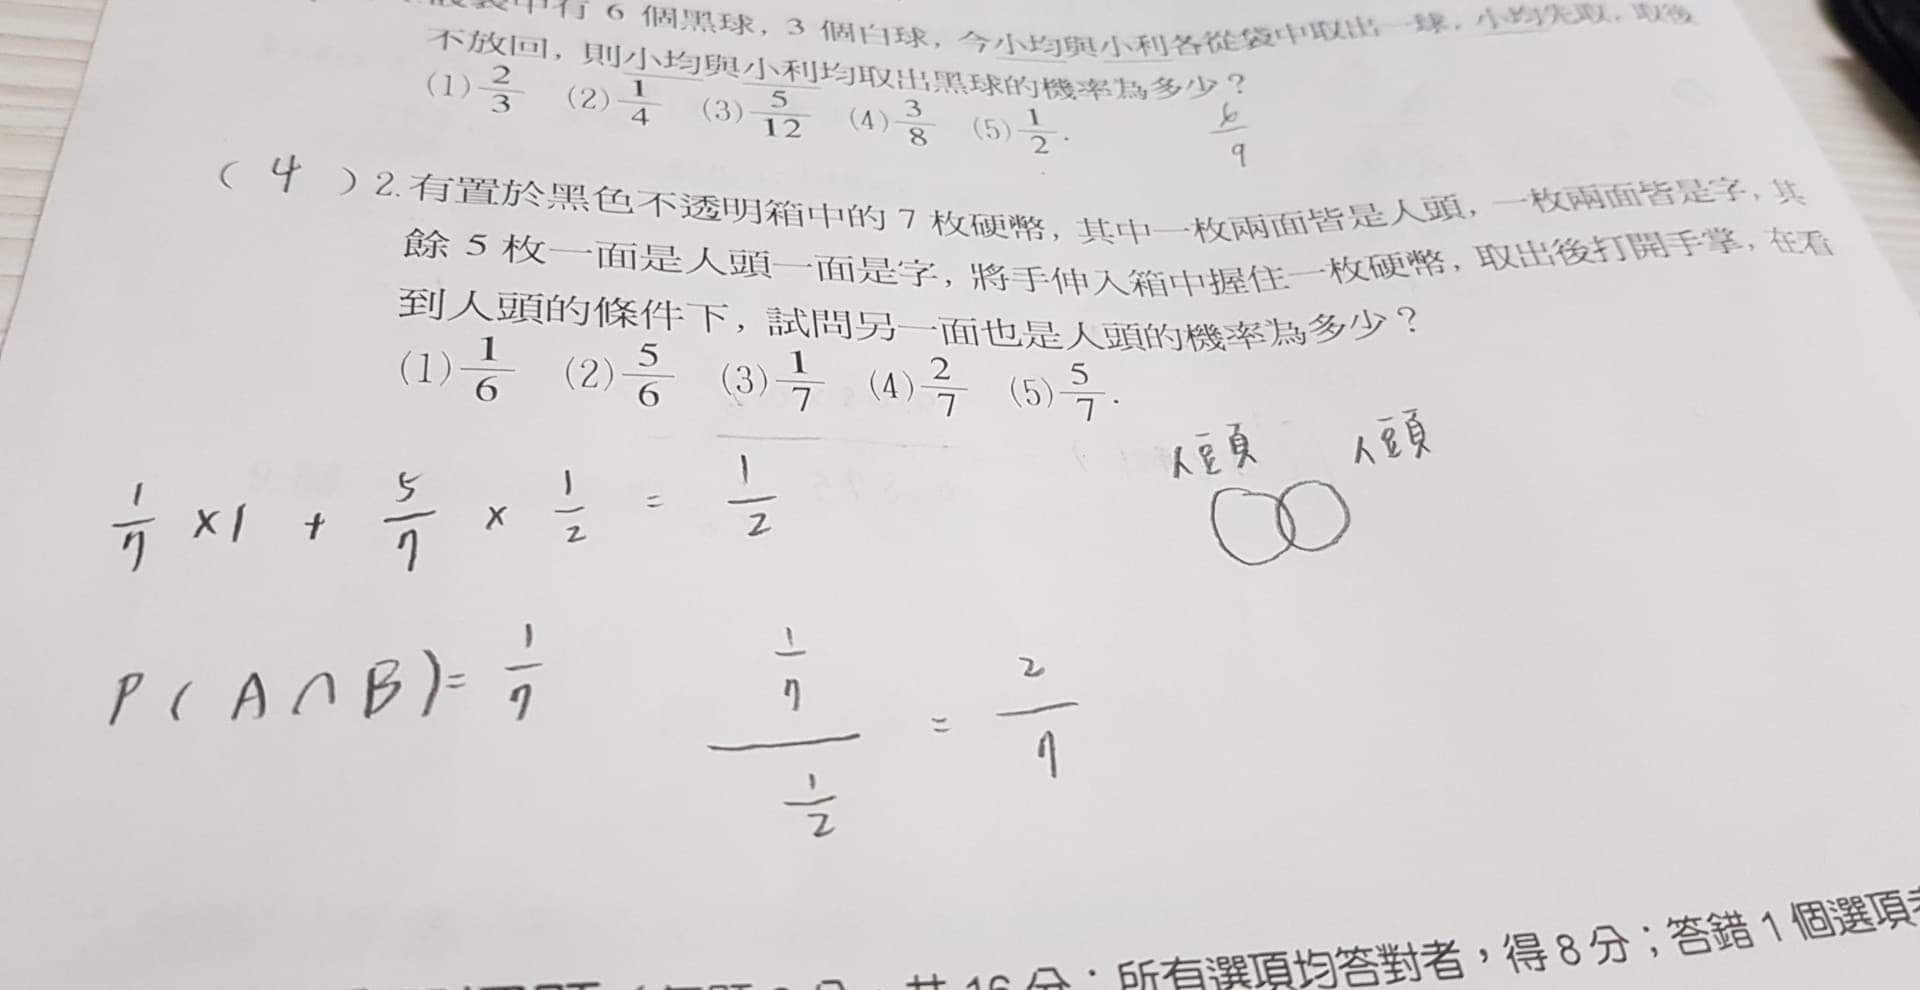 中有 6 個黑球, 3 個白球, 今小均與小利各從袋中取出一球, 小均先取, 取後
不放回, 則小均與小利均取出黑球的機率為多少?
(1) 2/3 (2) 1/4 (3) 5/12 (4) 3/8 (5) 1/2 .
6/9
( 4 ) 2. 有置於黑色不透明箱中的 7 枚硬幣, 其中一枚兩面皆是人頭, 一枚兩面皆是字, 其
餘 5 枚一面是人頭一面是字, 將手伸入箱中握住一枚硬幣, 取出後打開手掌, 在看
到人頭的條件下, 試問另一面也是人頭的機率為多少?
(1) 1/6 (2) 5/6 (3) 1/7 (4) 2/7 (5) 5/7 .
人頭 人頭
1/7 × 1 + 5/7 × 1/2 = 1/2
P(A∩B) = 1/7
(1/7)/(1/2) = 2/7
所有選項均答對者,得 8 分;答錯 1 個選項